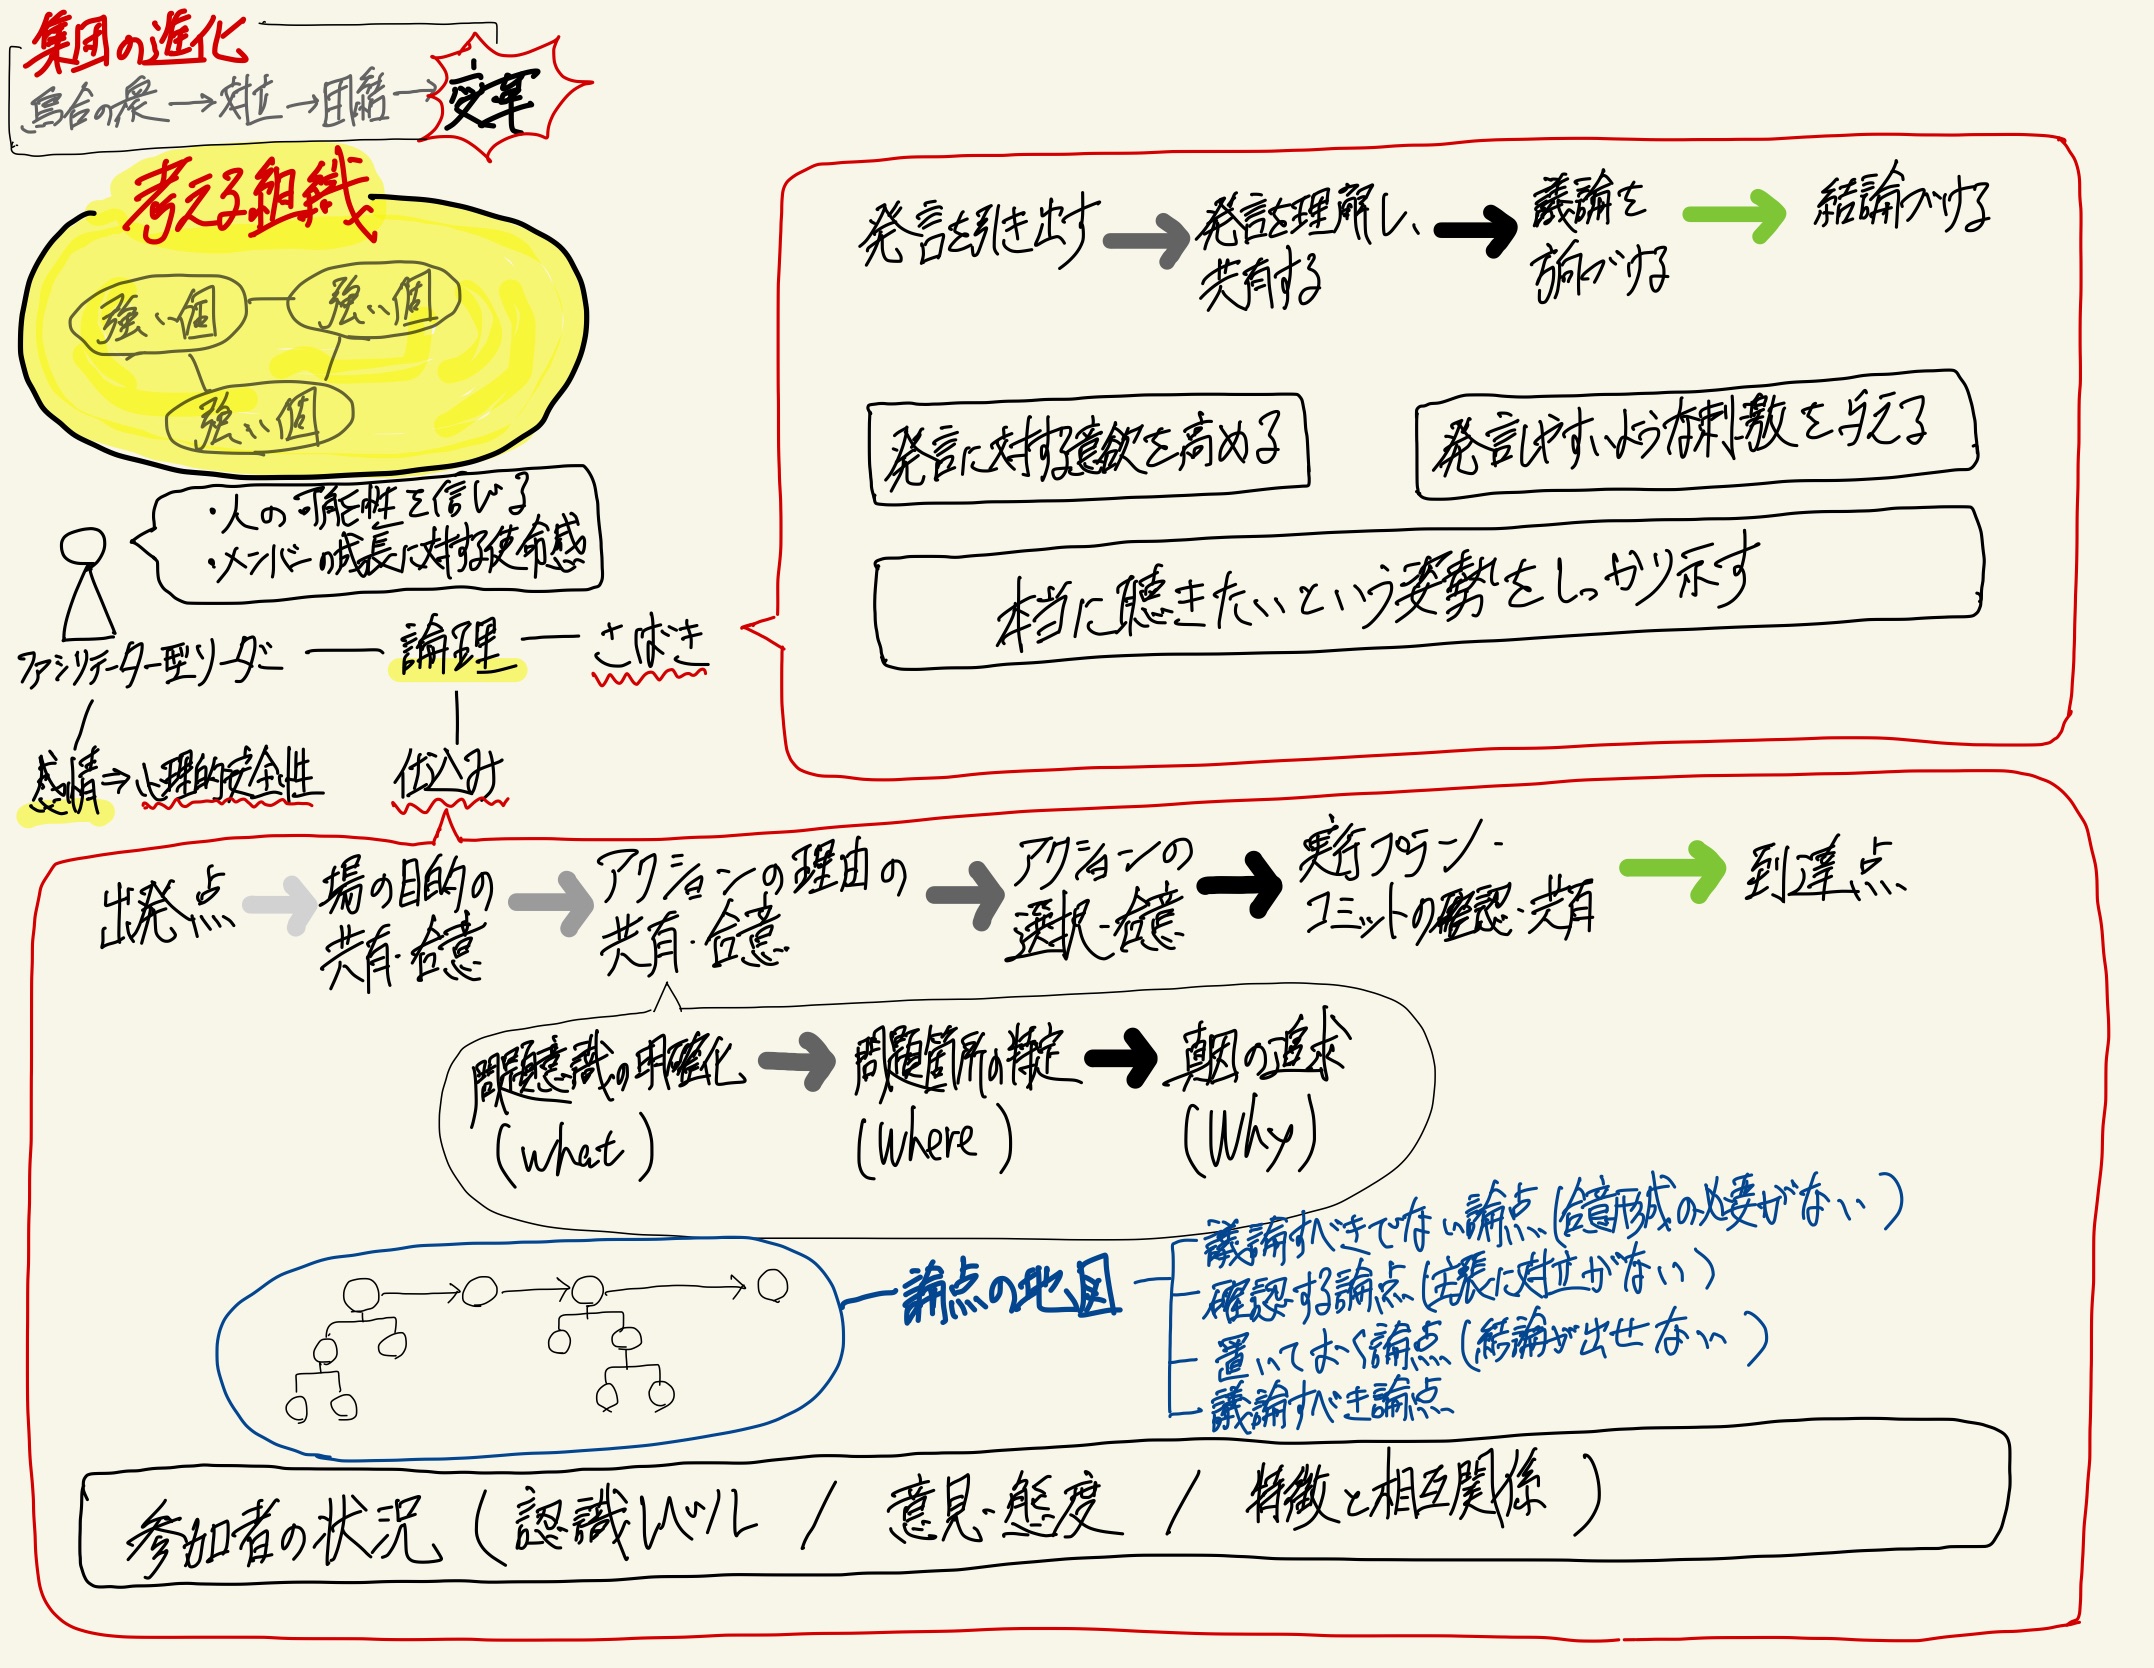 集団の進化
烏合の衆→対立→団結→変革
考える組織
強い個
強い個
強い個
・人の可能性を信じる
・メンバーの成長に対する使命感
ファシリテーター型リーダー
論理
さばき
感情⇒心理的安全性
仕込み
発言を引き出す
発言を理解し、
共有する
議論を
方向づける
結論づける
発言に対する意欲を高める
発言しやすいような刺激を与える
本当に聴きたいという姿勢をしっかり示す
出発点
場の目的の
共有・合意
アクションの理由の
共有・合意
アクションの
選択・合意
実行プラン・
コミットの確認・共有
到達点
問題意識の明確化
(what)
問題箇所の特定
(where)
真因の追求
(Why)
論点の地図
議論すべきでない論点(合意形成の必要がない)
確認する論点(主張に対立がない)
置いておく論点(結論が出せない)
議論すべき論点
参加者の状況(認識レベル / 意見・態度 / 特徴と相互関係)